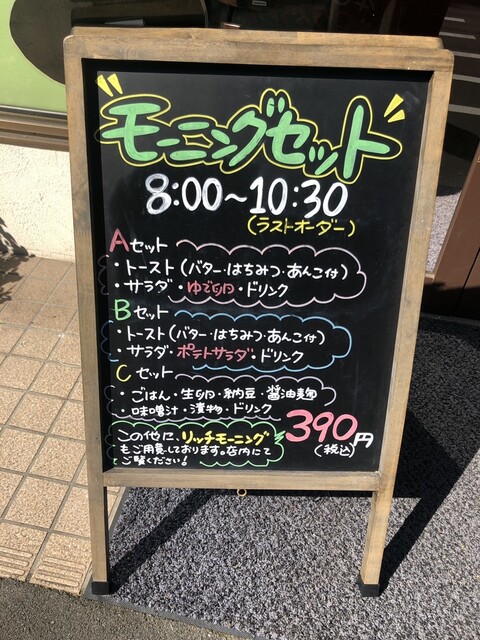 モーニングセット
8:00~10:30
(ラストオーダー)
Aセット
・トースト(バター・はちみつ・あんこ付)
・サラダ・ゆで卵・ドリンク
Bセット
・トースト(バター・はちみつ・あんこ付)
・サラダ・ポテトサラダ・ドリンク
Cセット
・ごはん・生卵・納豆・醤油麹
・味噌汁・漬物・ドリンク
390円
(税込)
この他に、リッチモーニング
もご用意しております。店内にて
ご覧ください!